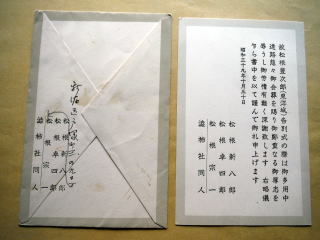 故松根豊次郎(東洋城)告別式の際は御多用中
遠路態々御会葬を賜り御鄭重なる御厚志を
辱うし御芳情有難く深謝致します 右略儀
乍ら書中を以て謹んで御礼申上げます
昭和三十九年十月三十日
松根新八郎
松根卓四郎
松根宗一
澁柿社同人
松根新八郎
松根卓四郎
松根宗一
澁柿社同人